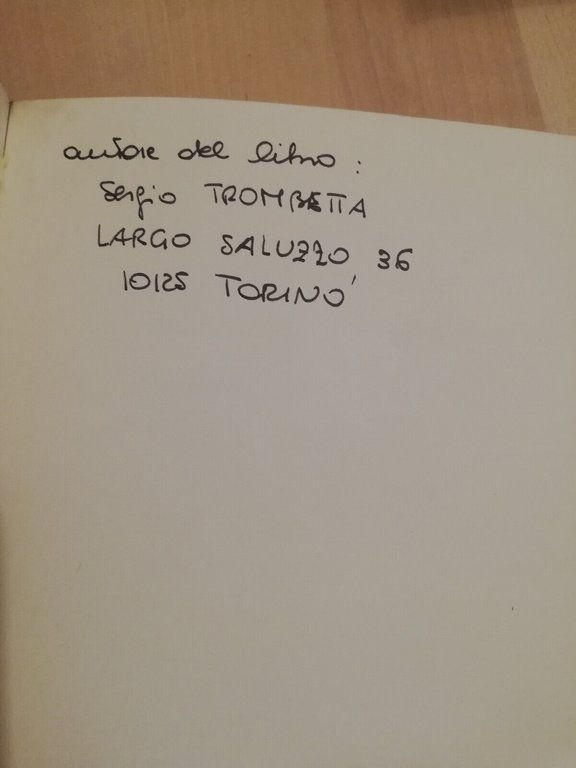 autore del libro :
Sergio TROMBETTA
LARGO SALUZZO 36
10125 TORINO